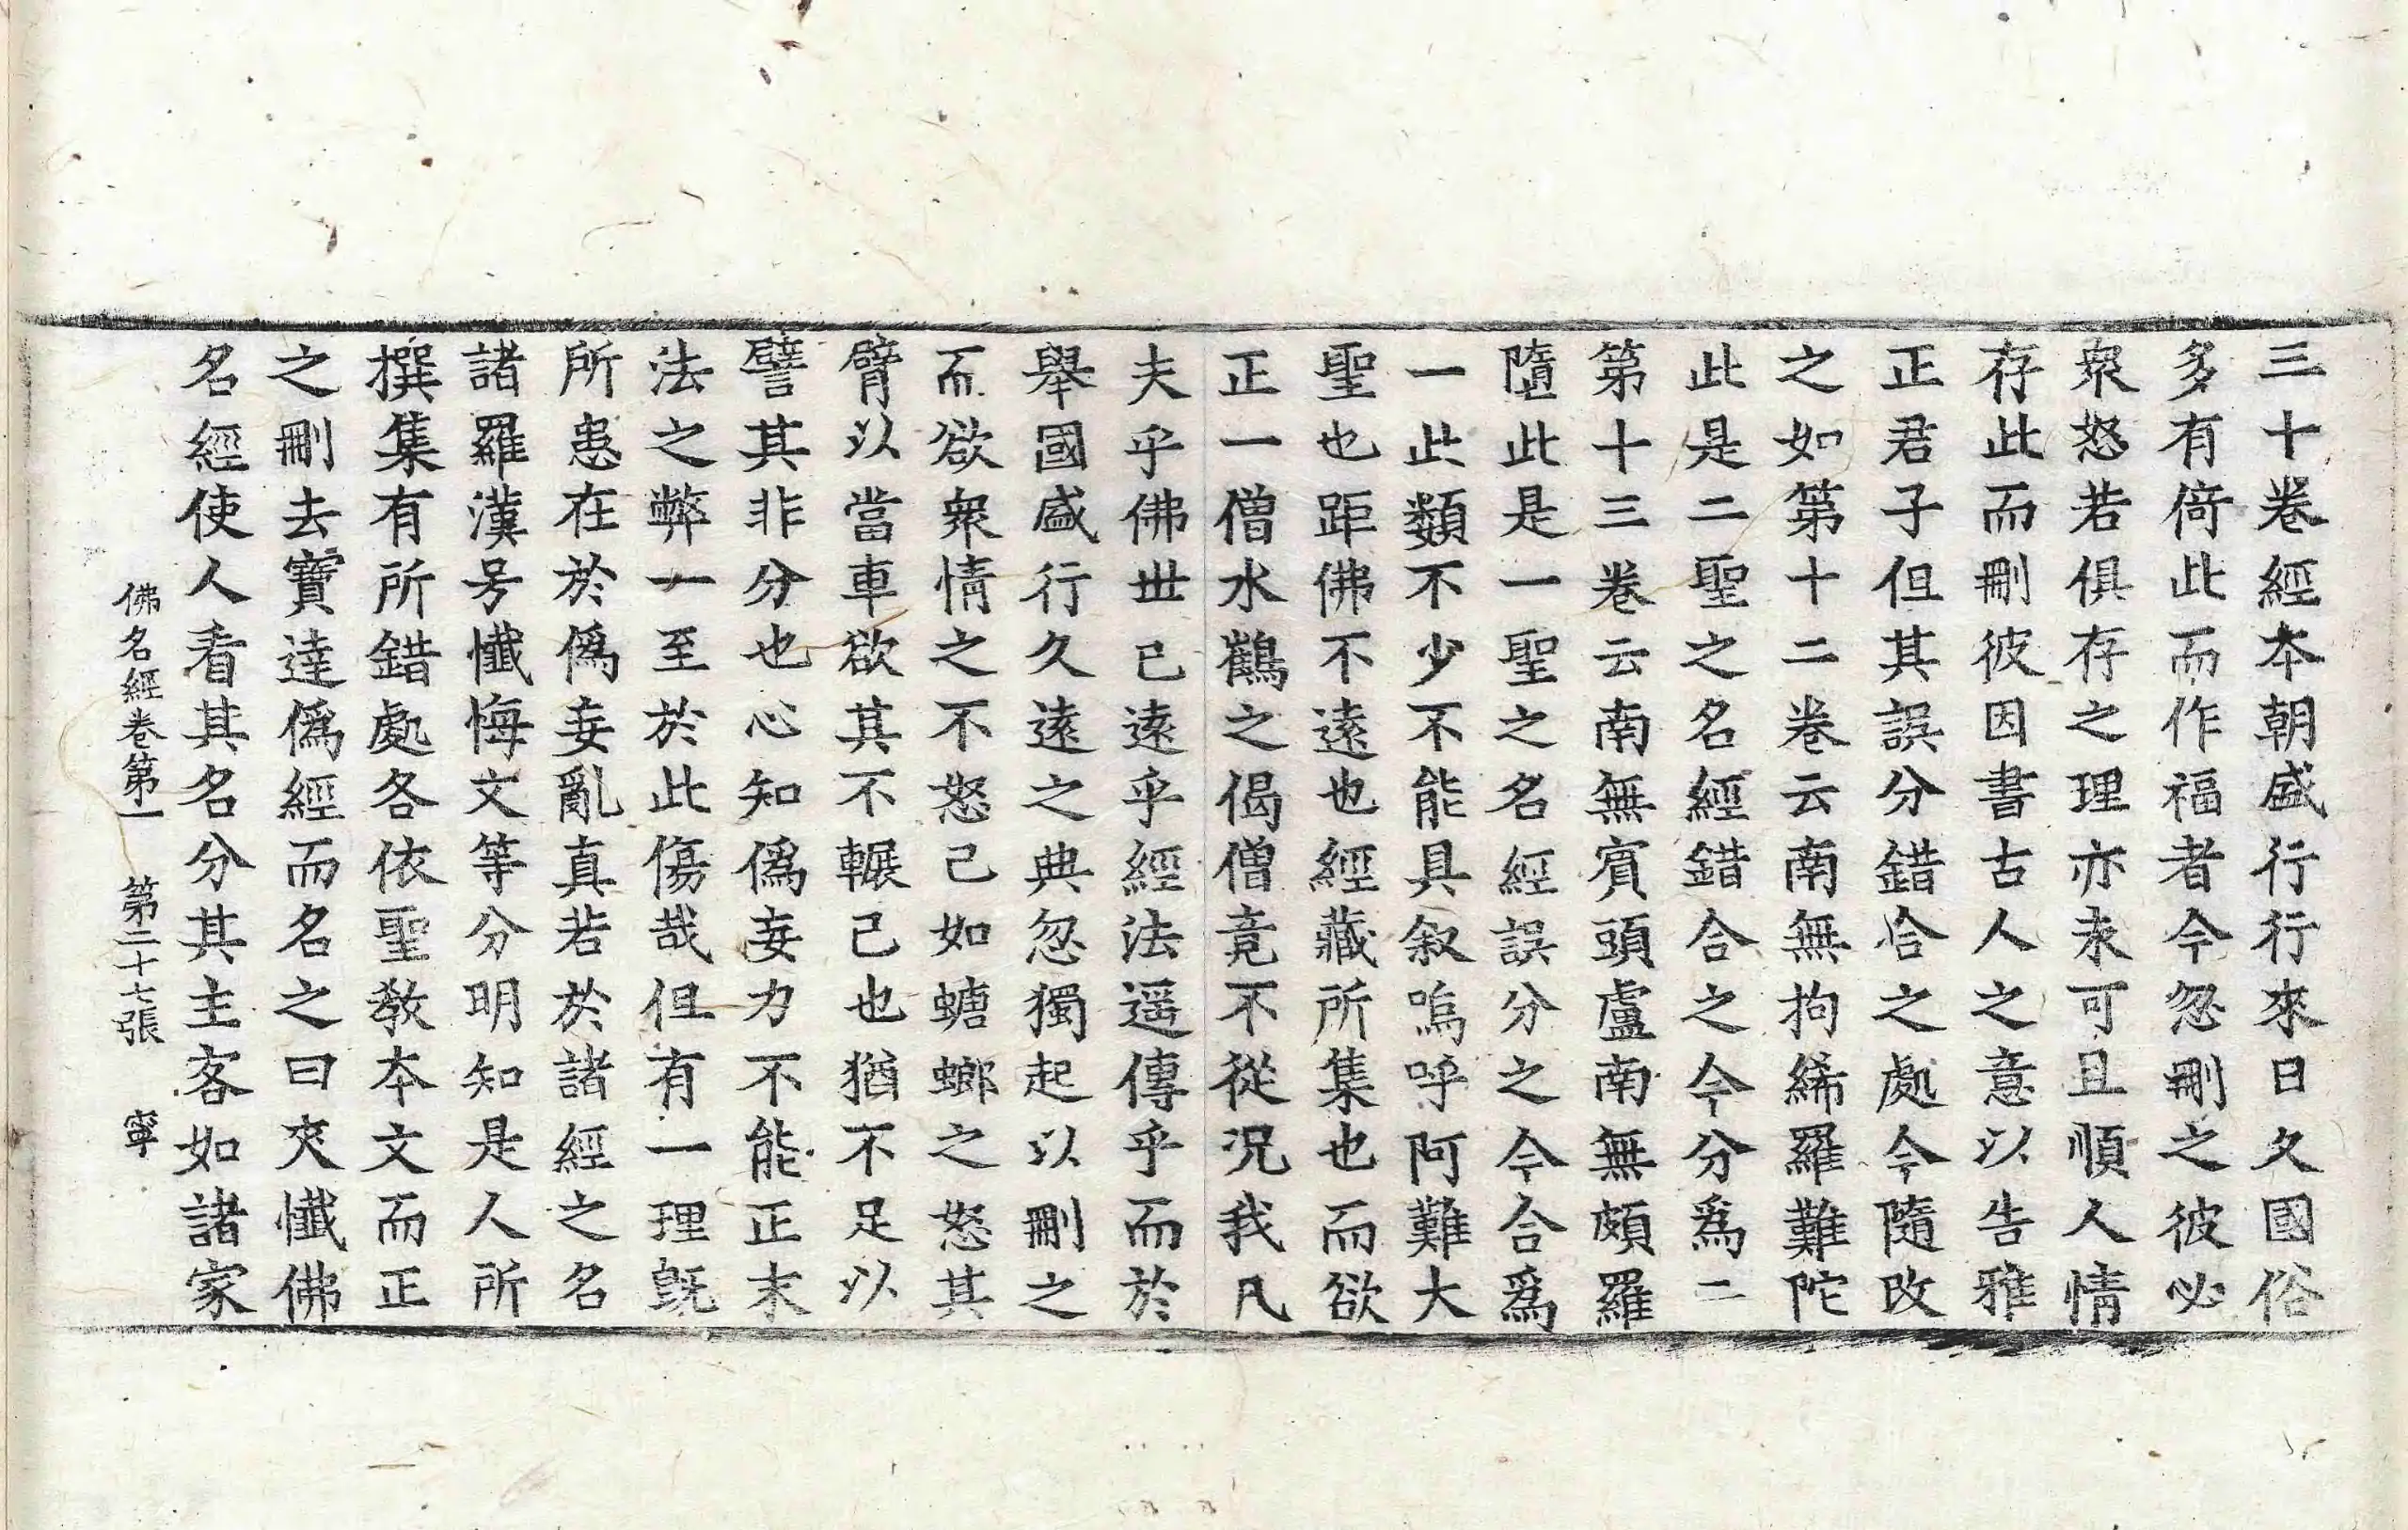 三十卷經本朝盛行行來日久國俗
多有倚此而作福者今忽刪之彼必
衆怒若俱存之理亦未可且順人情
存此而刪彼因書古人之意以告雅
正君子但其誤分錯合之處今隨改
之如第十二卷云南無拘絺羅難陀
此是二聖之名經錯合之今分爲二
第十三卷云南無賓頭盧南無頗羅
隨此是一聖之名經誤分之今合爲
一此類不少不能具叙嗚呼阿難大
聖也距佛不遠也經藏所集也而欲
正一僧水鶴之偈僧竟不從況我凡
夫乎佛世已遠乎經法遥傳乎而於
舉國盛行久遠之典忽獨起以刪之
而欲衆情之不怒己如螗螂之怒其
臂以當車欲其不輾己也猶不足以
譬其非分也心知僞妄力不能正末
法之弊一至於此傷哉但有一理旣
所患在於僞妄亂真若於諸經之名
諸羅漢号懺悔文等分明知是人所
撰集有所錯處各依聖教本文而正
之刪去寶達僞經而名之曰夾懺佛
名經使人看其名分其主客如諸家
佛名經卷第一 第二十七張 寧